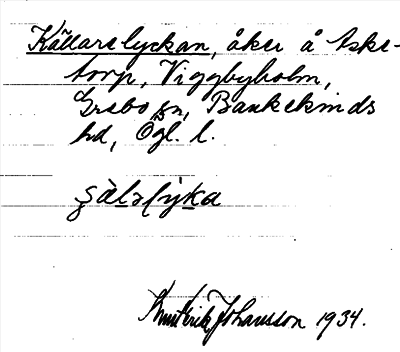 Källarelyckan, åker å Aske-
torp, Viggbyholm,
Grebo sn, Bankekinds
hd, Ögl. l.
Knut Erik Johansson 1934.